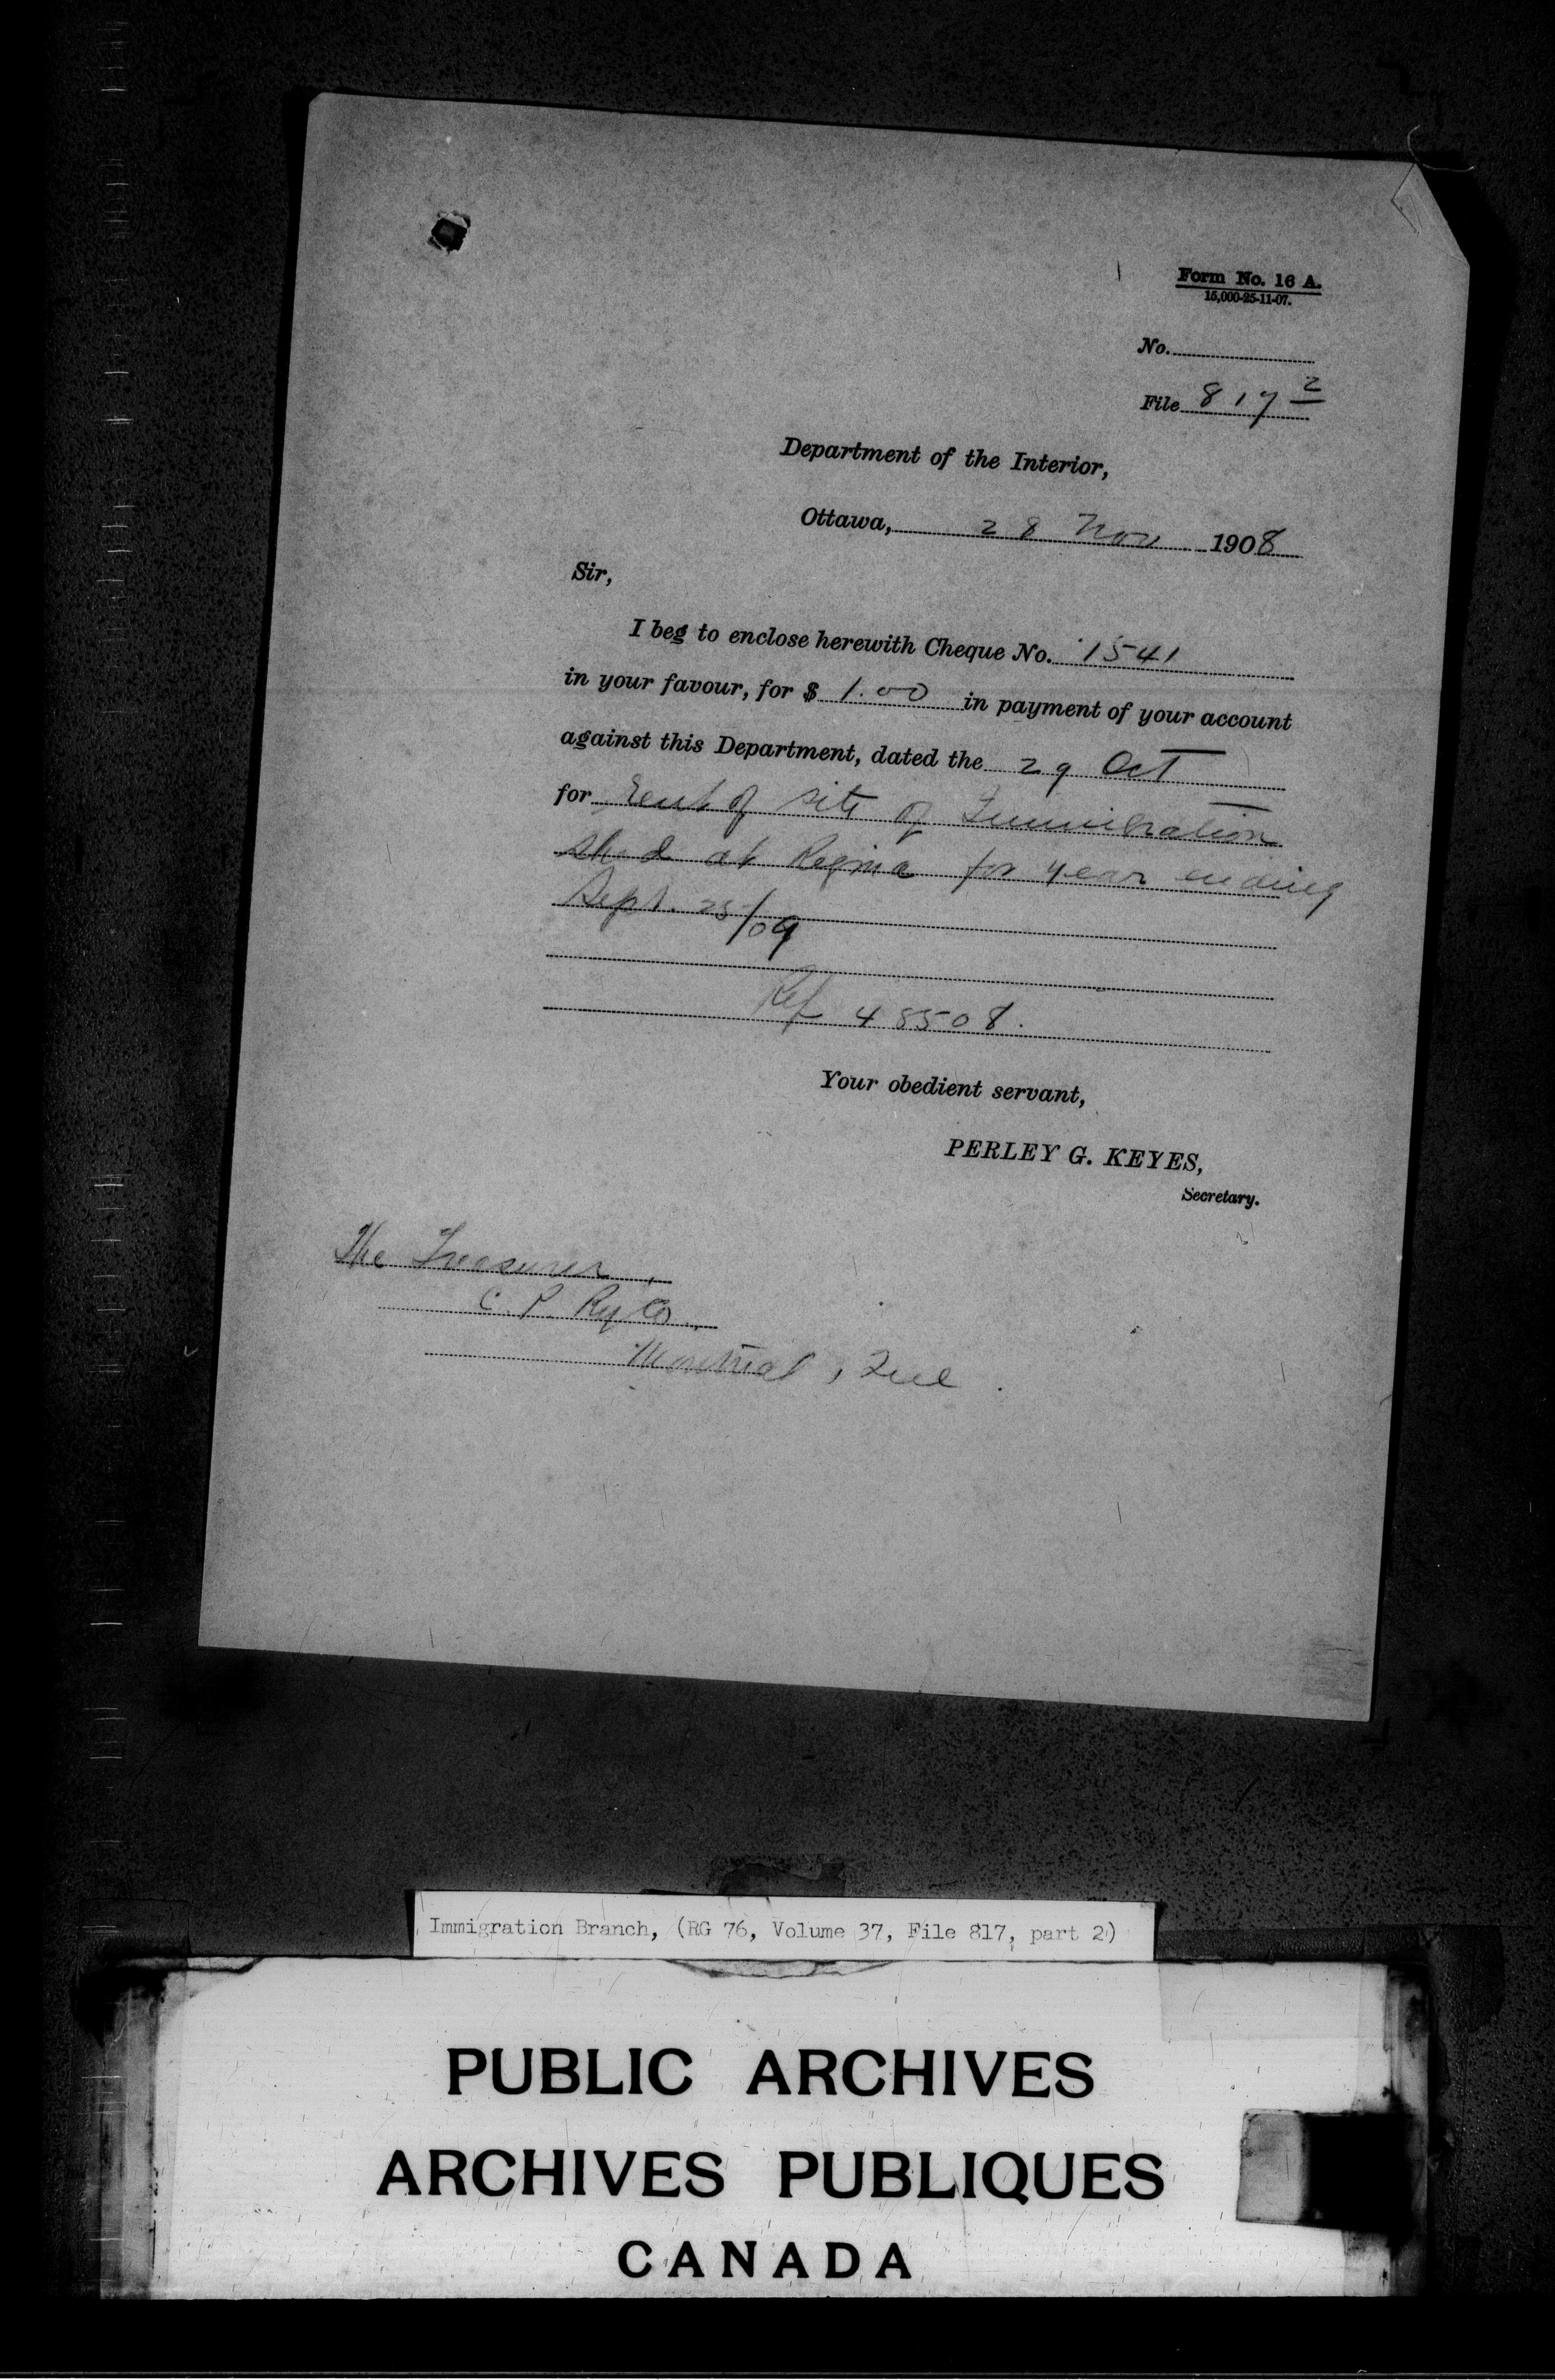 Form No. 16 A.
15,000-25-11-07.
No.
File 817 2
Department of the Interior,
Ottawa, 28 Nov 1908
Sir,
I beg to enclose herewith Cheque No. 1541
in your favour, for $ 1.00 in payment of your account
against this Department, dated the 29 Oct
for rent of site of Immigration
shed at Regina for year ending
Sept. 25/09
Ref 48508.
Your obedient servant,
PERLEY G. KEYES,
Secretary.
The Treasurer,
C. P. Ry Co.,
Montreal, Que.
Immigration Branch, (RG 76, Volume 37, File 817, part 2)
PUBLIC ARCHIVES
ARCHIVES PUBLIQUES
CANADA